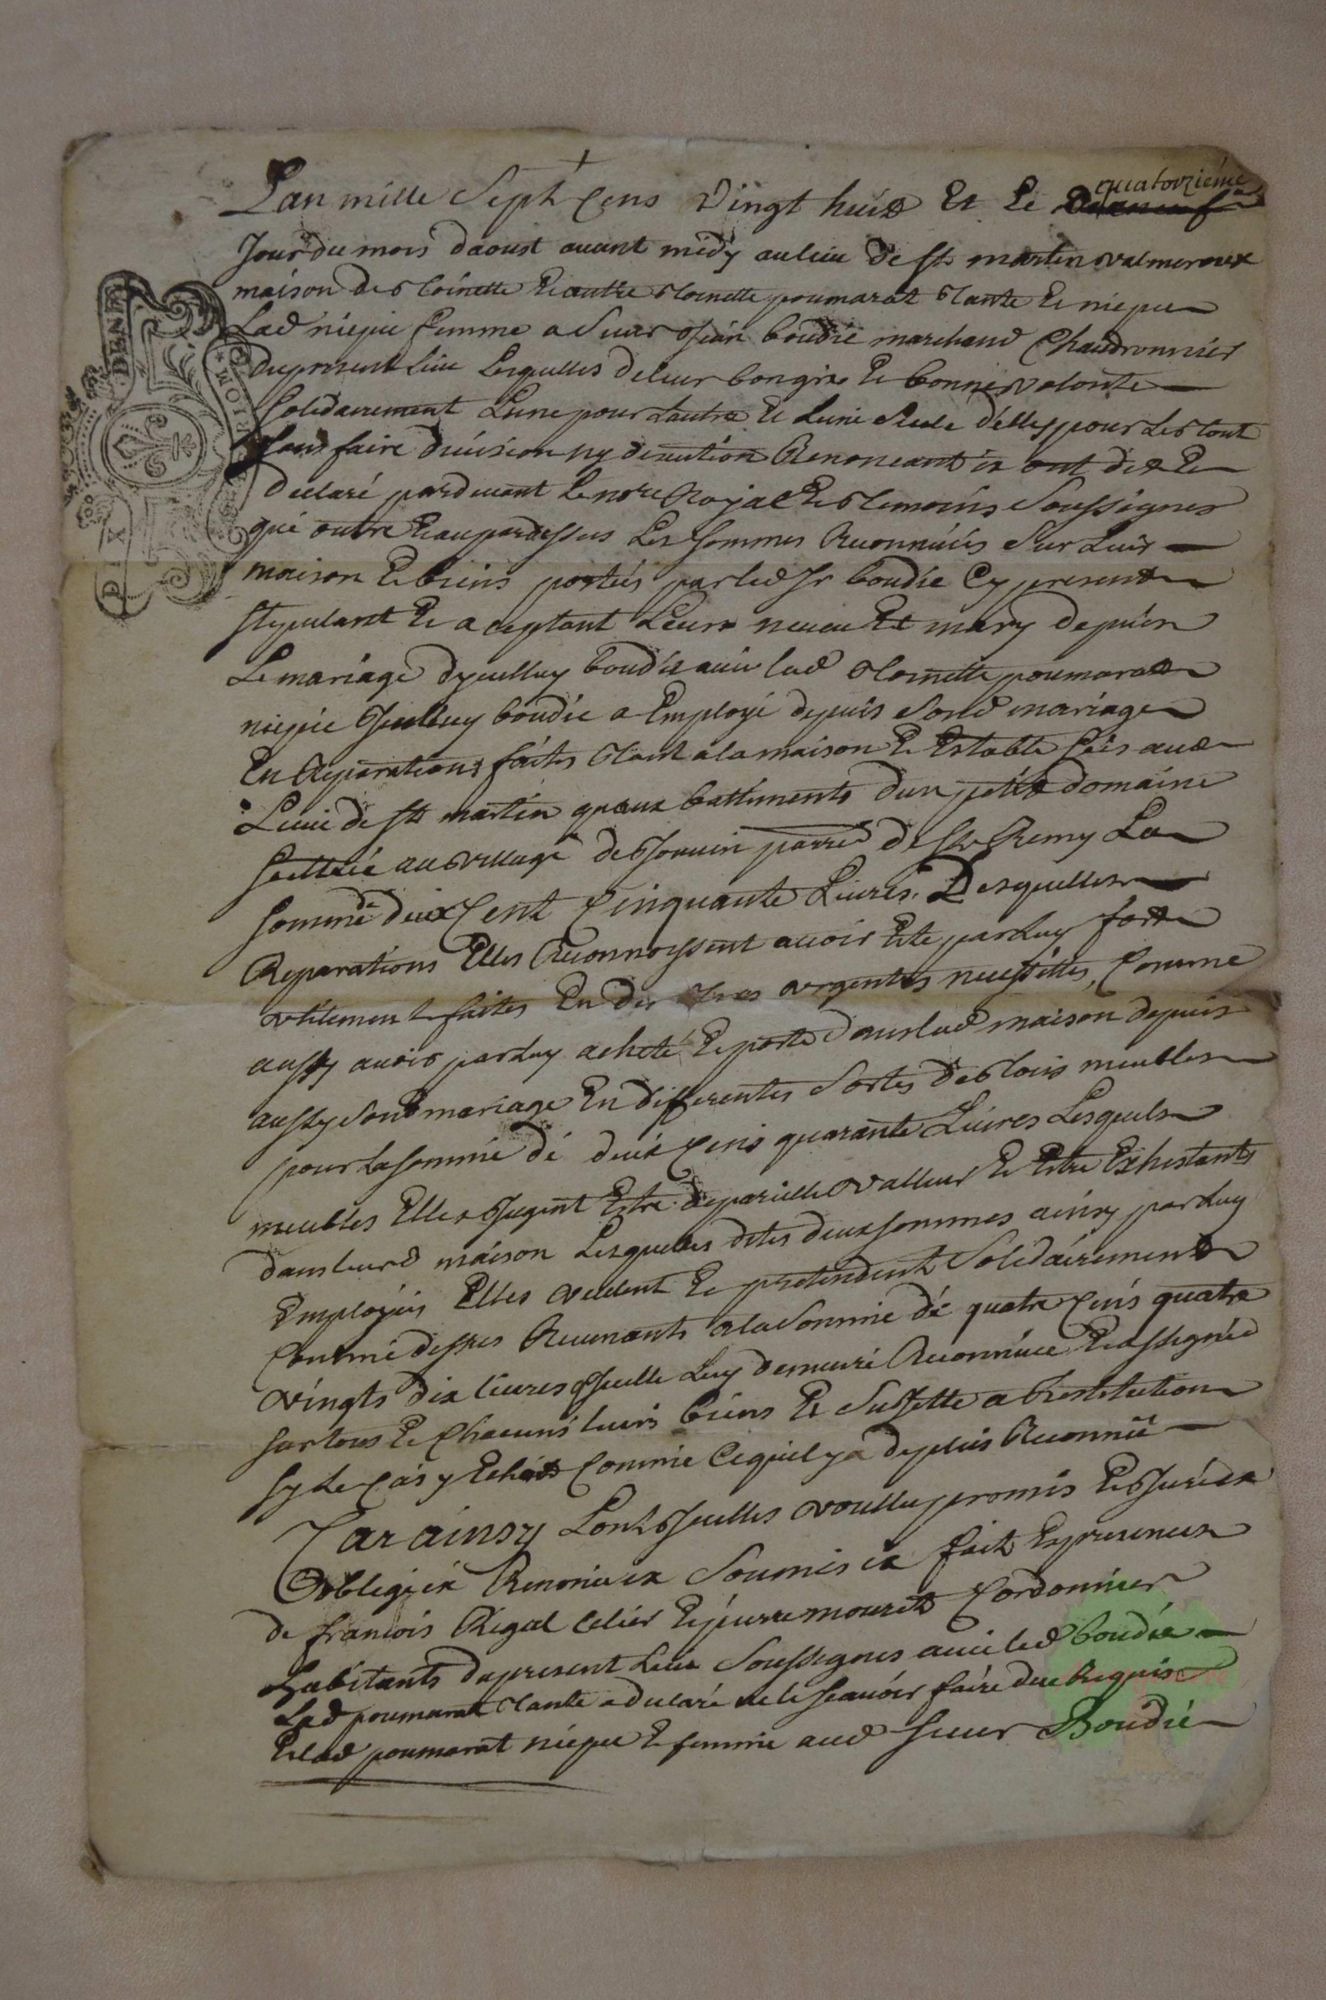 quatorzième
L'an mille Sept Cens Vingt huit Et Le
Jour du mois daoust avant midy au lieu de St martin valmeroux
maison de Toinette Et autre Toinette poumarat Tante Et niepce
Lad niepce femme a Sieur Jean boudie marchand Chaudronnier
du present lieu Lesquelles de leur bon gre Et bonne volonte
Solidairement Lune pour Lautre Et Lune Seule d'elles pour Le tout
sans faire division ny discution Renonceant ix ont dit Et
declaré pardevant Le nore Royal Et Temoins Soussignes
que outre Et au par dessus Les Sommes Reconnües Sur Leur
maison Et biens portés par led Sr boudie Cy present
Stipulant Et aceptant Leur neveu Et mary depuis
Le mariage dycelluy boudie avec lad Toinette poumarat
niepce Jcelluy boudie a Employé depuis Sond mariage
En Reparations faites Tant a la maison Et Estable Sis aud
Lieu de St martin quaux battiments dun petit domaine
Scittué au village de Jouvin parre de St Remy La
Somme de deux Cent Cinquante Livres. Desquelles
Reparations Elles Reconnoissent avoir Esté par Luy fort
utilement faites En des tres urgentes necessittés, Comme
aussy avoir par Luy acheté Et porté dans lad maison depuis
aussy Sond mariage En differentes Sortes de Tous meubles
pour la Somme de deux Cens quarante Livres Lesquels
meubles Elles Jugent Estre de pareille valleur Et Estre Exhistants
dans leurd maison Lesquelles dites deux Sommes ainsy par Luy
Employées Elles veulent Et pretendent Solidairement
Comme dessus Revenants a la Somme de quatre Cens quatre
vingts dix livres quelle Luy demeure Reconnüe Et assignée
sur tous Et Chacuns leurs biens Et Sujette a Restitution
Sy Le Cas y Echoit Comme Ce quil y a de plus Reconnu
Car ainsy Lont Jcelles voullu promis Et Juré ix
Obligé ix Renoncé ix Soumis ix fait Es presences
de francois Rigal Celier Et pierre mouret Cordonnier
habitants du present Lieu Soussignes avec led boudie
Lad poumarat Tante a declaré ne le Scavoir faire de ce Requise
Et lad poumarat niepce Et femme aud Sieur Boudié
DIX DENR
RIOM